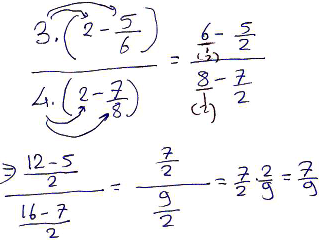 3.(2 - 5/6) / 4.(2 - 7/8) = (6/1 - 5/2) / (8/1 - 7/2)
(2) (2)
⇒ ((12-5)/2) / ((16-7)/2) = (7/2) / (9/2) = 7/2 · 2/9 = 7/9